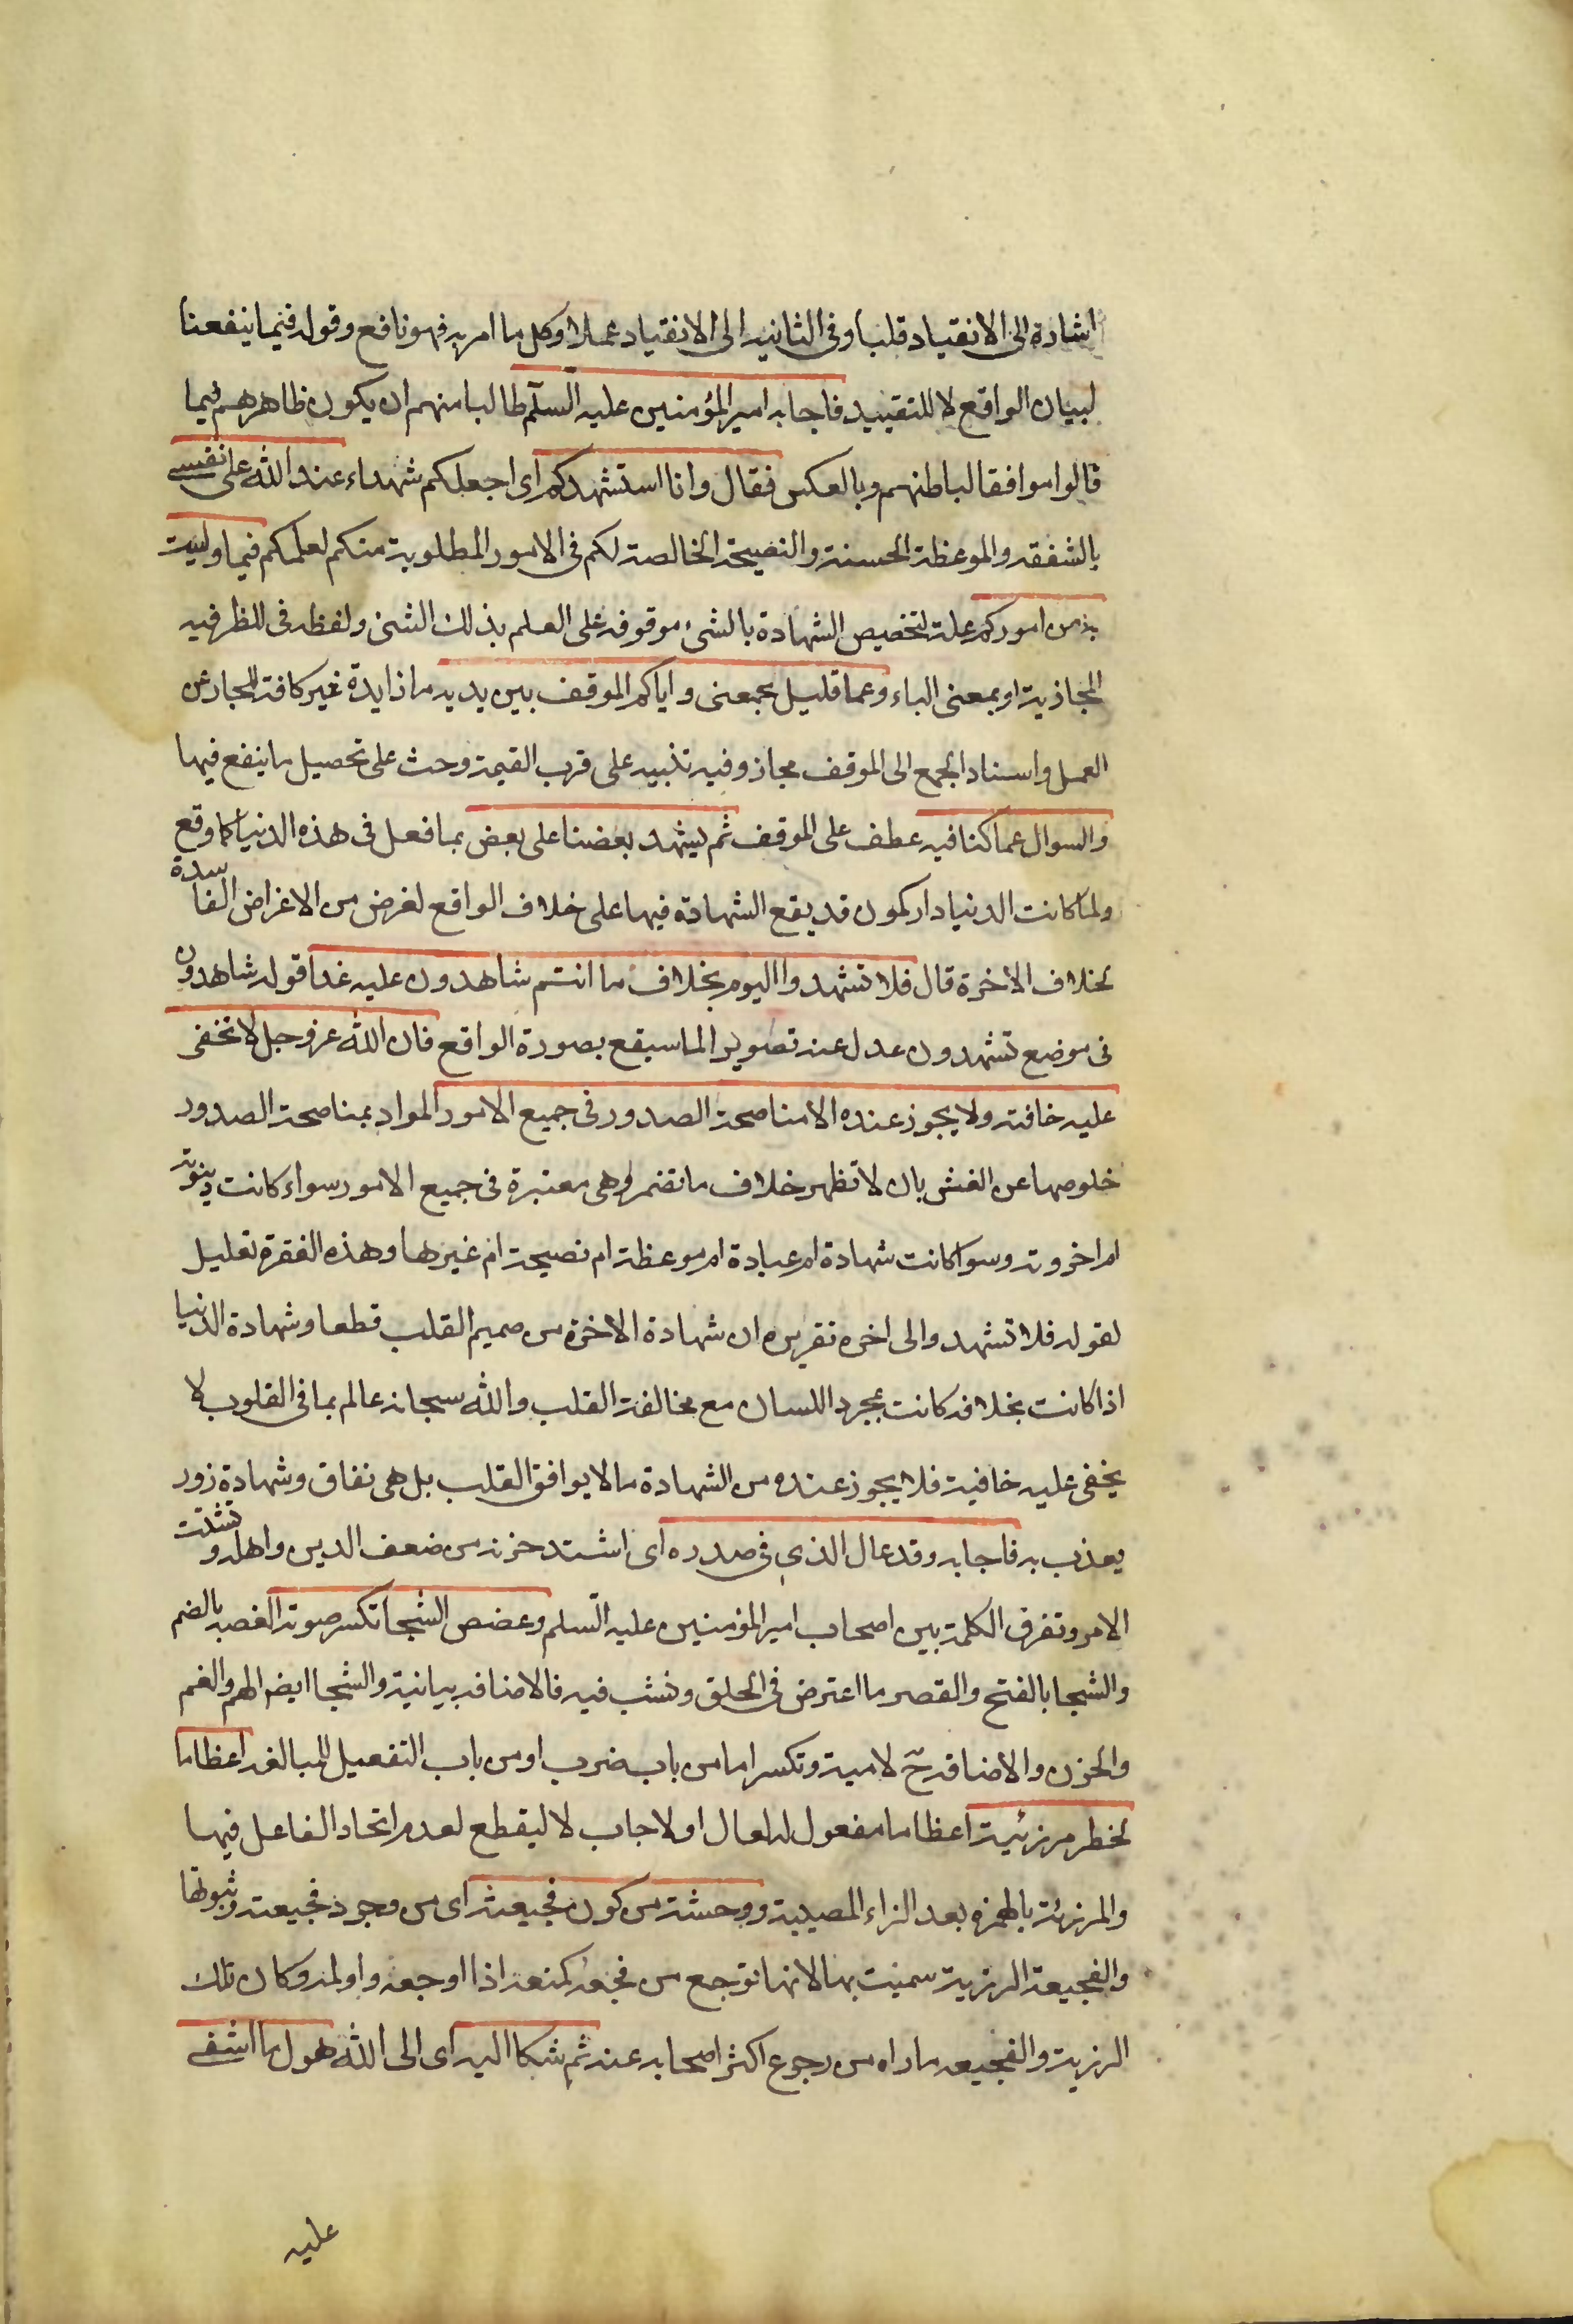 اشارة الى الانقياد قلبا وفى الثانيه الى الانقياد عملا وكل ما امر به فهو نافع وقوله فيما ينفعنا
لبيان الواقع لا للتقييد فاجابه امير المؤمنين عليه السلم طالبا منهم ان يكون ظاهرهم فيما
قالوا موافقا لباطنهم وبالعكس فقال وانا استشهدكم اى اجعلكم شهداء عند الله على نفسى
بالشفقه والموعظة الحسنة والنصيحة الخالصة لكم فى الامور المطلوبة منكم لعلمكم فيما وليت
به من اموركم علة لتخصيص الشهادة بالشىء موقوفه على العلم بذلك الشىء ولفظه فى للظرفيه
المجازية او بمعنى الباء وعما قليل يجمعنى واياكم الموقف بين يديه ما زايدة غير كافة للجار عن
العمل واسناد الجمع الى الموقف مجاز وفيه تنبيه على قرب القيمة وحث على تحصيل ما ينفع فيها
والسوال عما كنا فيه عطف على الموقف ثم يشهد بعضنا على بعض بما فعل فى هذه الدنيا كما وقع
ولما كانت الدنيا دار كمون قد يقع الشهادة فيها على خلاف الواقع لغرض من الاغراض الفاسدة
بخلاف الاخرة قال فلا تشهدوا اليوم بخلاف ما انتم شاهدون عليه غدا قوله شاهدون
فى موضع تشهدون عدل عنه تصويرا لما سيقع بصورة الواقع فان الله عز وجل لا تخفى
عليه خافية ولا يجوز عنده الا مناصحة الصدور فى جميع الامور المراد بمناصحة الصدور
خلوصها عن الغش بان لا تظهر خلاف ما تضمر وهى معتبرة فى جميع الامور سواء كانت دنيوية
ام اخروية وسوا كانت شهادة ام عبادة ام موعظة ام نصيحة ام غيرها وهذه الفقرة تعليل
لقوله فلا تشهدوا الى اخره تقريره ان شهادة الاخرة من صميم القلب قطعا وشهادة الدنيا
اذا كانت بخلافه كانت بمجرد اللسان مع مخالفة القلب والله سبحانه عالم بما فى القلوب لا
يخفى عليه خافية فلا يجوز عنده من الشهادة ما لا يوافق القلب بل هى نفاق وشهادة زور
يعذب به فاجابه وقد عال الذى فى صدره اى اشتد حزنه من ضعف الدين واهله وتشتت
الامر وتفرق الكلمة بين اصحاب امير المؤمنين عليه السلم وغصص الشجا تكسر صوته الغصه بالضم
والشجا بالفتح والقصر ما اعترض فى الحلق ونشب فيه فالاضافه بيانية والشجا ايضا الهم والغم
والحزن والاضافة ح لامية وتكسر اما من باب ضرب او من باب التفعيل للمبالغه اعظاما
لخطر مرزئته اعظاما مفعول له لعال او لاجاب لا ليقطع لعدم اتحاد الفاعل فيها
والمرزئة بالهمزه بعد الزاء المصيبة ووحشة من كون فجيعته اى من وجود فجيعته وثبوتها
والفجيعة الرزية سميت بها لانها توجع من فجعه كمنعه اذا اوجعه واولمه وكان تلك
الرزية والفجيعه ما راه من رجوع اكثر اصحابه عنه ثم شكا اليه اى الى الله هول ما اشفى
عليه